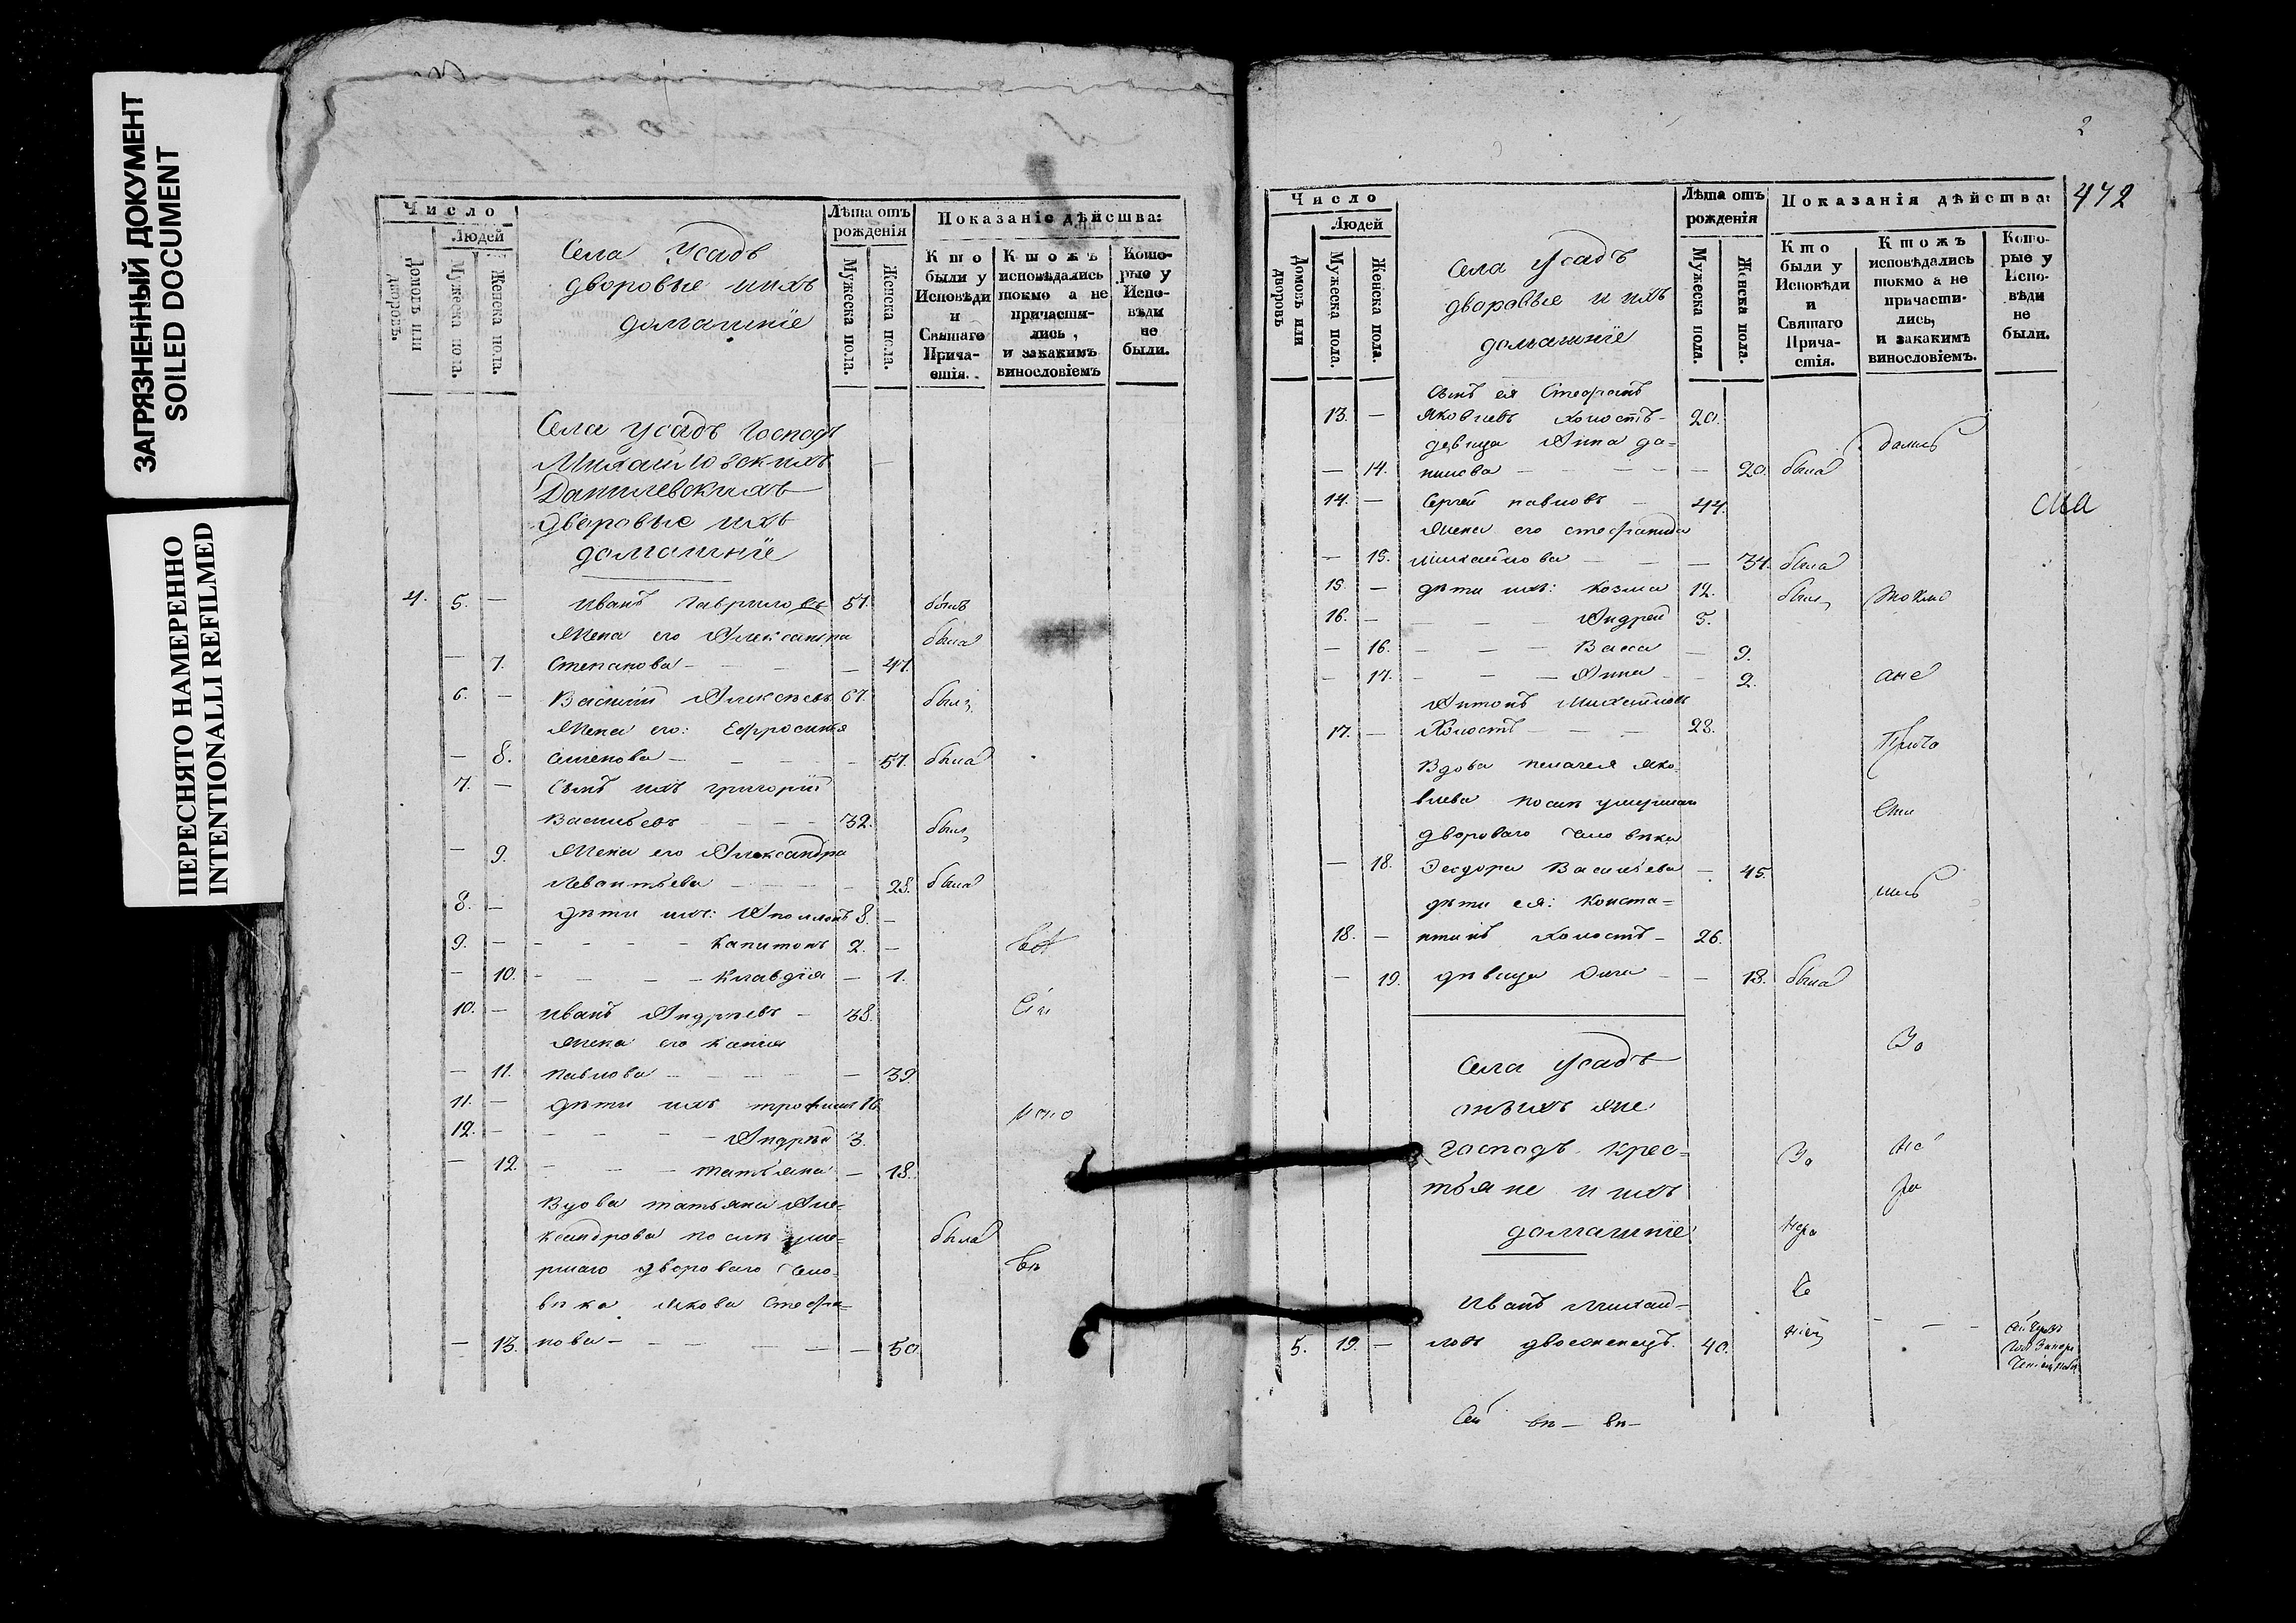 ЗАГРЯЗНЕННЫЙ ДОКУМЕНТ
SOILED DOCUMENT
ПЕРЕСНЯТО НАМЕРЕННО
INTENTIONALLI REFILMED
Число
Людей
Домовъ или дворовъ.
Мужеска пола.
Женска пола.
Села Усадъ
дворовые ихъ
домашніе
Лѣта отъ рожденія
Мужеска пола.
Женска пола.
Показаніе дѣйства:
Кто были у Исповѣди и Святаго Причастія.
Ктожъ исповѣдались токмо а не причастились, и закакимъ винословіемъ
Которые у Исповѣди не были.
Села Усадъ Господъ
Михайловскихъ
Данилевскихъ
дворовые ихъ
домашніе
4. 5. — Иванъ Гавриловъ 51. былъ
Жена его Александра была
— 7. Степанова — — 47.
6. — Василий Алексѣевъ 67. былъ
Жена его: Ефросинья
— 8. Семенова — — 57. была
7. — Сынъ ихъ григорій
Васильевъ — 32. былъ
— 9. Жена его Александра
Леонтьева — — 28. была
8. — дѣти ихъ: Аполлонъ 8. —
9. — — Капитонъ 2. — Всѣ
— 10. — Клавдія — 1.
10. — Иванъ Андреевъ — 38. Сіи
Жена его
— 11. Павлова — — 39.
11. — дѣти ихъ трофимъ 16
12. — — Андрѣй 3.
— 12. — Татьяна — 18.
Вдова татьяна Але-
ксандрова послѣ уме- была
ршаго двороваго чело-
вѣка Якова Стефа-
— 13. нова — — 50.
2
472
Число
Людей
Домовъ или дворовъ
Мужеска пола.
Женска пола.
Села Усадъ
дворовые и ихъ
домашніе
Лѣта отъ рожденія
Мужеска пола.
Женска пола.
Показанія дѣйства:
Кто были у Исповѣди и Святаго Причастія.
Ктожъ исповѣдались токмо а не причастились, и закакимъ винословіемъ.
Которые у Исповѣди не были.
Сынъ ея Стефанъ
13. — Яковлевъ холостъ — 20.
девица Анна да- дались
— 14. нилова — — 20. была
14. — Сергей павловъ — 44.
Жена его стефанида
— 15. михайлова — — 34. была
15. — дѣти ихъ: козма 12. былъ токмо
16. — — Андрей 5.
— 16. — Васса — 9.
— 17. — Анна — 2. ане
Антонъ Михайловъ
17. — Холостъ — 28. Прича
Вдова пелагея яко-
влева послѣ умершаго сти
двороваго человѣка
— 18. Феодора Васильева — 45. лись
дѣти ея: Конста-
18. — нтинъ холостъ — 26.
— 19. дѣвица — 18. была
Села Усадъ
тѣхъ же
господъ крес-
тьяне и ихъ
домашніе
Иванъ Михай-
5. 19. — ловъ двоеженецъ. 40.